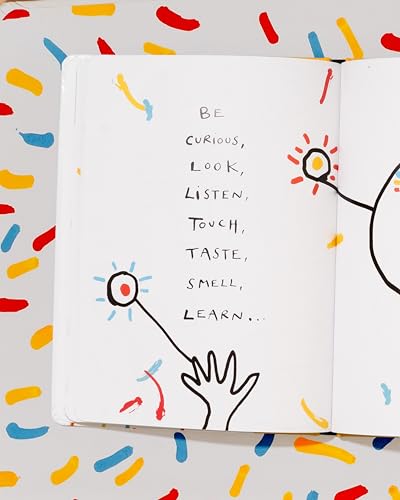 BE
CURIOUS,
LOOK,
LiSTEN,
TOUCH,
TASTE,
SMELL,
LEARN...